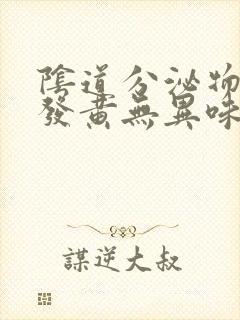 陰道分泌物
發黃無異味
謀逆大叔